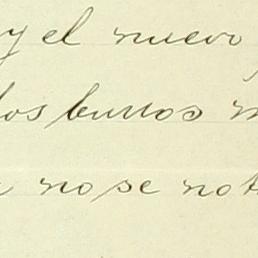 y el nuevo
los burros
no se not